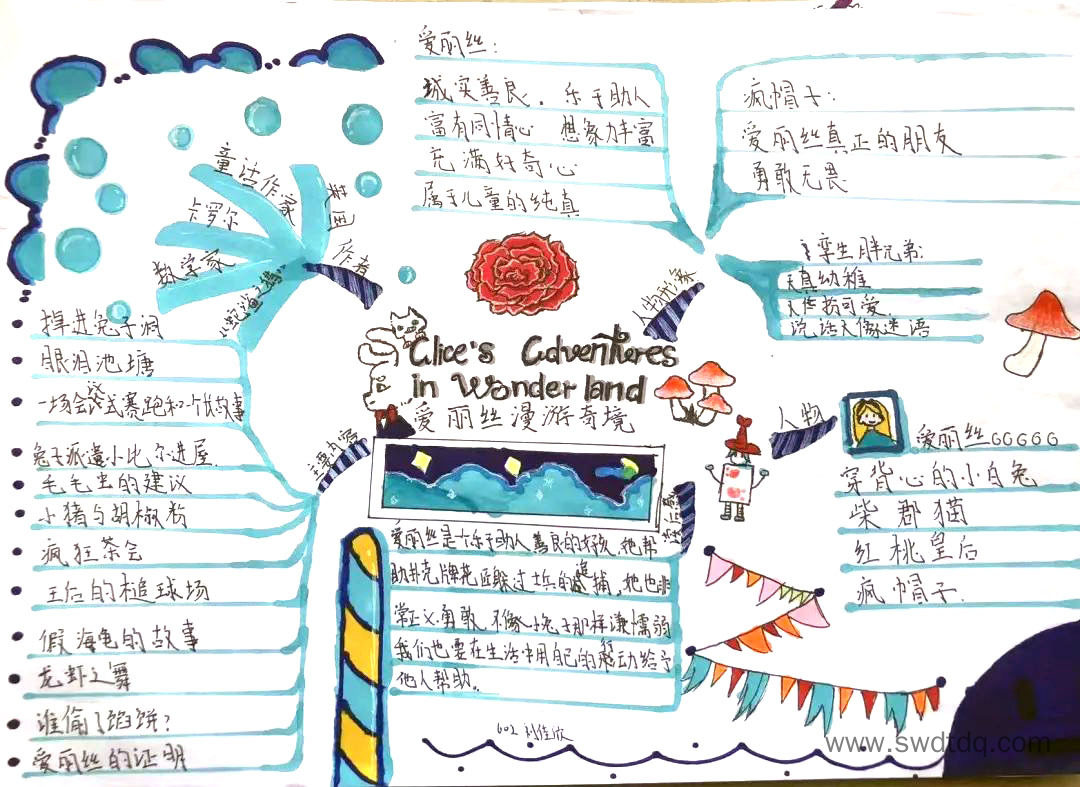 爱丽丝:
城实善良. 乐于助人
富有同情心 想象力丰富
充满好奇心
属于儿童的纯真
疯帽子:
爱丽丝真正的朋友
勇敢无畏
孪生胖兄弟:
天真幼稚
可爱.
说话天像迷语
人物形象
童话作家
卡罗尔
数学家
英国
作者
掉进兔子洞
眼泪池塘
一场会议式赛跑和一个长故事
兔子派遣小比尔进屋.
毛毛虫的建议
小猪与胡椒粉
疯狂茶会
王后的槌球场
假海龟的故事
龙虾之舞
谁偷了馅饼?
爱丽丝的证明
主要内容
Alice's Adventures
in Wonderland
爱丽丝漫游奇境
人物
爱丽丝GGGGG
穿背心的小白兔
柴郡猫
红桃皇后
疯帽子.
爱丽丝是个乐于助人善良的好孩,他帮
助扑克牌花匠躲过士兵的追捕,她也非
常正义勇敢 不像小兔子那样谦懦弱
我们也要在生活中用自己的行动给予
他人帮助。
602 刘佳欣
www.swdtdq.com